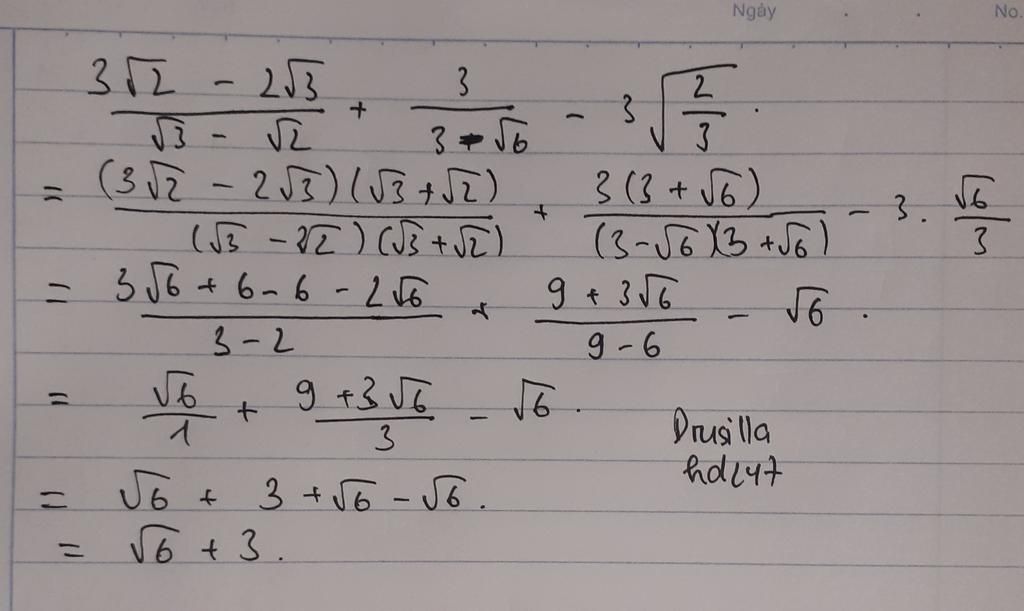 Ngày . . No.
(3√2 - 2√3)/(√3 - √2) + 3/(3 - √6) - 3√(2/3) .
= (3√2 - 2√3)(√3 + √2)/(√3 - √2)(√3 + √2) + 3(3 + √6)/(3 - √6)(3 + √6) - 3 . √6/3
= (3√6 + 6 - 6 - 2√6)/(3 - 2) + (9 + 3√6)/(9 - 6) - √6 .
= √6/1 + (9 + 3√6)/3 - √6 .
Drusilla
hd247
= √6 + 3 + √6 - √6 .
= √6 + 3 .